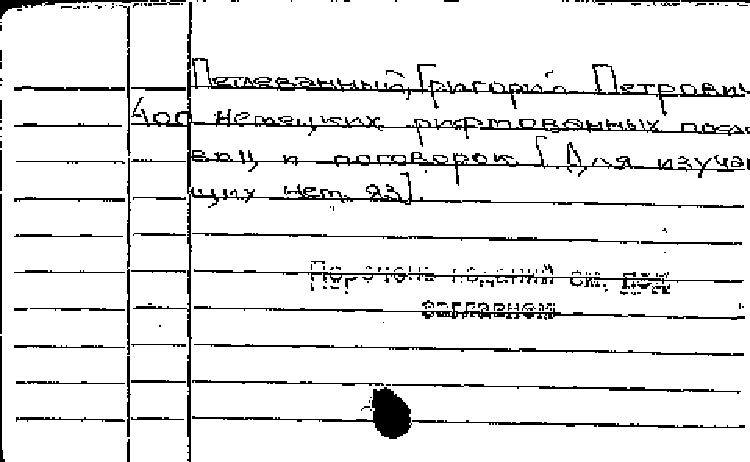 Петлеванный, Григорий Петрович
400 немецких рифмованных посло
виц и поговорок [Для изучаю
щих нем. яз].
Перечень изданий см. под
заглавием